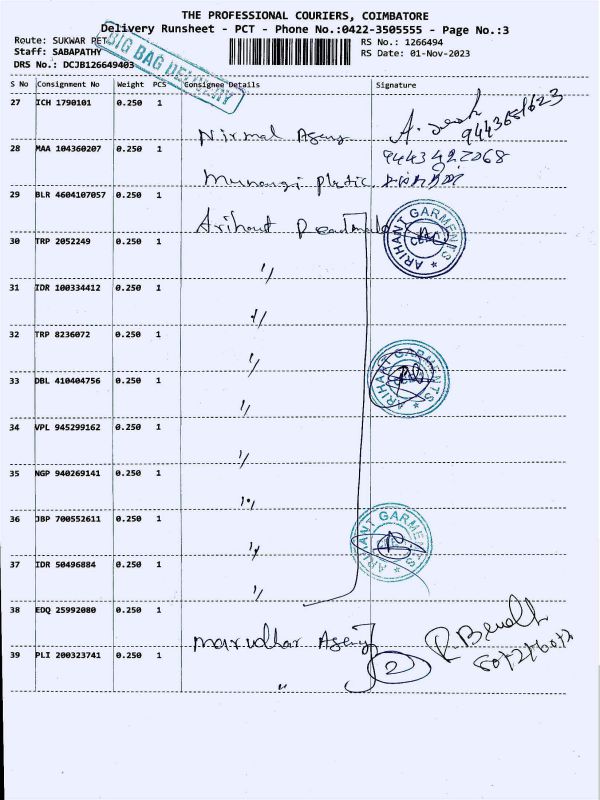 THE PROFESSIONAL COURIERS, COIMBATORE
Delivery Runsheet - PCT - Phone No.:0422-3505555 - Page No.:3
Route: SUKWAR PET
RS No.: 1266494
Staff: SABAPATHY
RS Date: 01-Nov-2023
DRS No.: DCJB126649403
BIG BAG DELIVERY
S No Consignment No Weight PCS Consignee Details Signature
27 ICH 1790101 0.250 1
Nirmal Agency
28 MAA 104360207 0.250 1
9443422068
29 BLR 4604107057 0.250 1
Arihant Readmade
ARIHANT GARMENTS
30 TRP 2052249 0.250 1
"
31 IDR 100334412 0.250 1
"
32 TRP 8236072 0.250 1
"
ARIHANT GARMENTS
33 DBL 410404756 0.250 1
"
34 VPL 945299162 0.250 1
"
35 NGP 940269141 0.250 1
"
36 JBP 700552611 0.250 1
"
ARIHANT GARMENTS
37 IDR 50496884 0.250 1
"
38 EDQ 25992080 0.250 1
Marudhar Agency
39 PLI 200323741 0.250 1
"
2